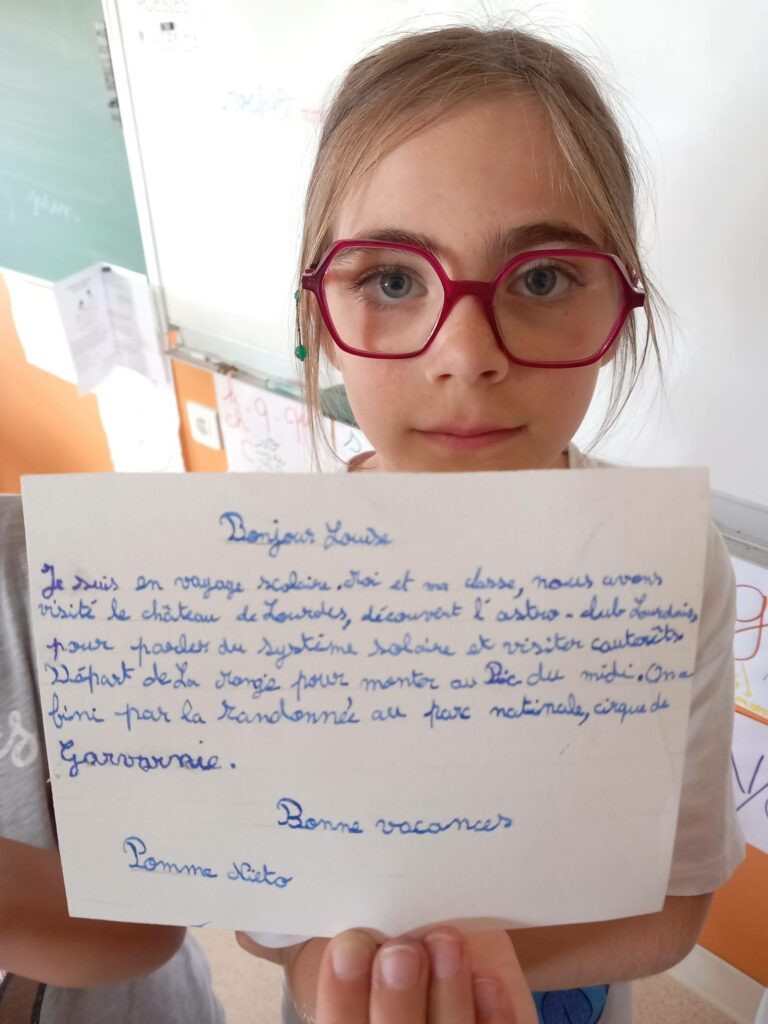 Bonjour Louise
Je suis en voyage scolaire. Moi et ma classe, nous avons
visité le château de Lourdes, découvert l'astro-club Lourdais,
pour parler du système solaire et visiter cautorêts
Départ de La monje pour monter au Pic du midi. On a
fini par la randonnée au parc nationale, cirque de
Garvarnie.
Bonne vacances
Pomme Nieto